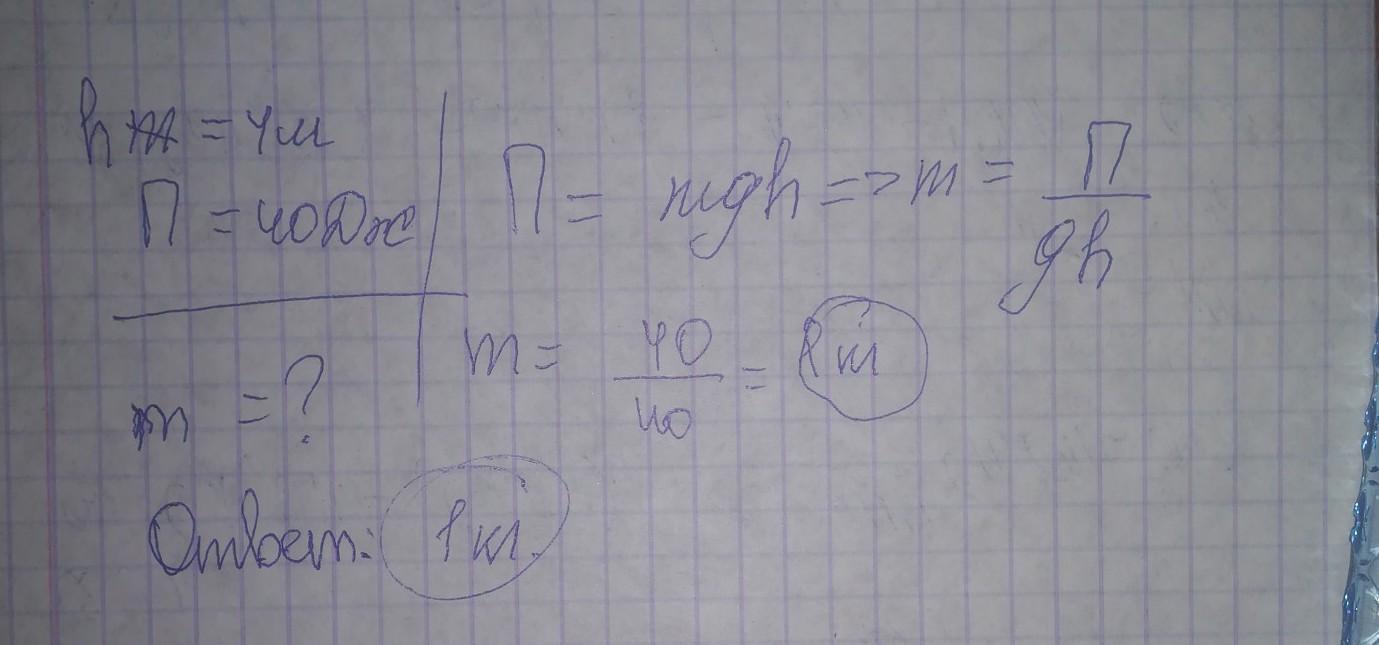 h = 4м
П = 40Дж
m = ?
П = mgh => m = П/gh
m = 40/40 = 1кг
Ответ: 1кг.